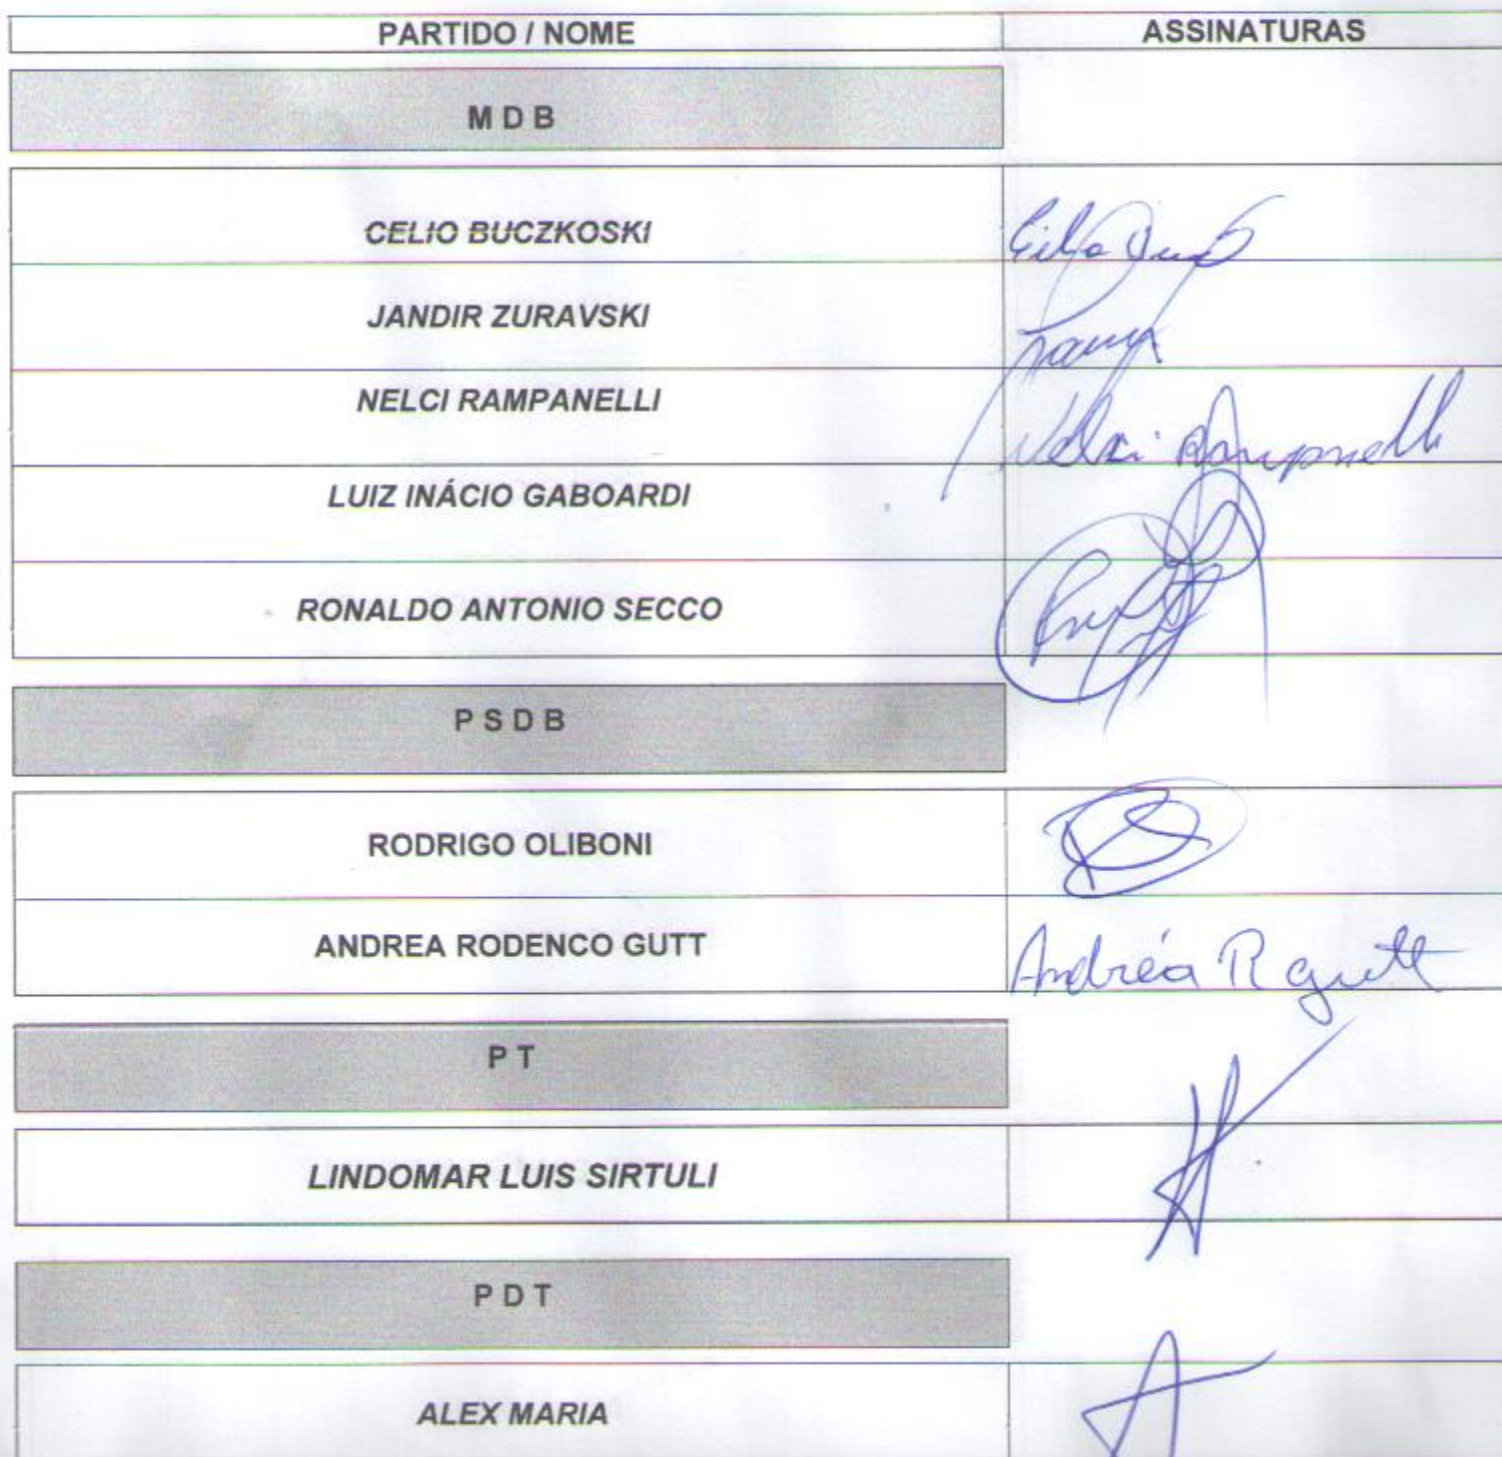 PARTIDO / NOME ASSINATURAS
M D B
CELIO BUCZKOSKI
JANDIR ZURAVSKI
NELCI RAMPANELLI Nelci Rampanelli
LUIZ INÁCIO GABOARDI
RONALDO ANTONIO SECCO
P S D B
RODRIGO OLIBONI
ANDREA RODENCO GUTT Andréa R Gutt
P T
LINDOMAR LUIS SIRTULI
P D T
ALEX MARIA